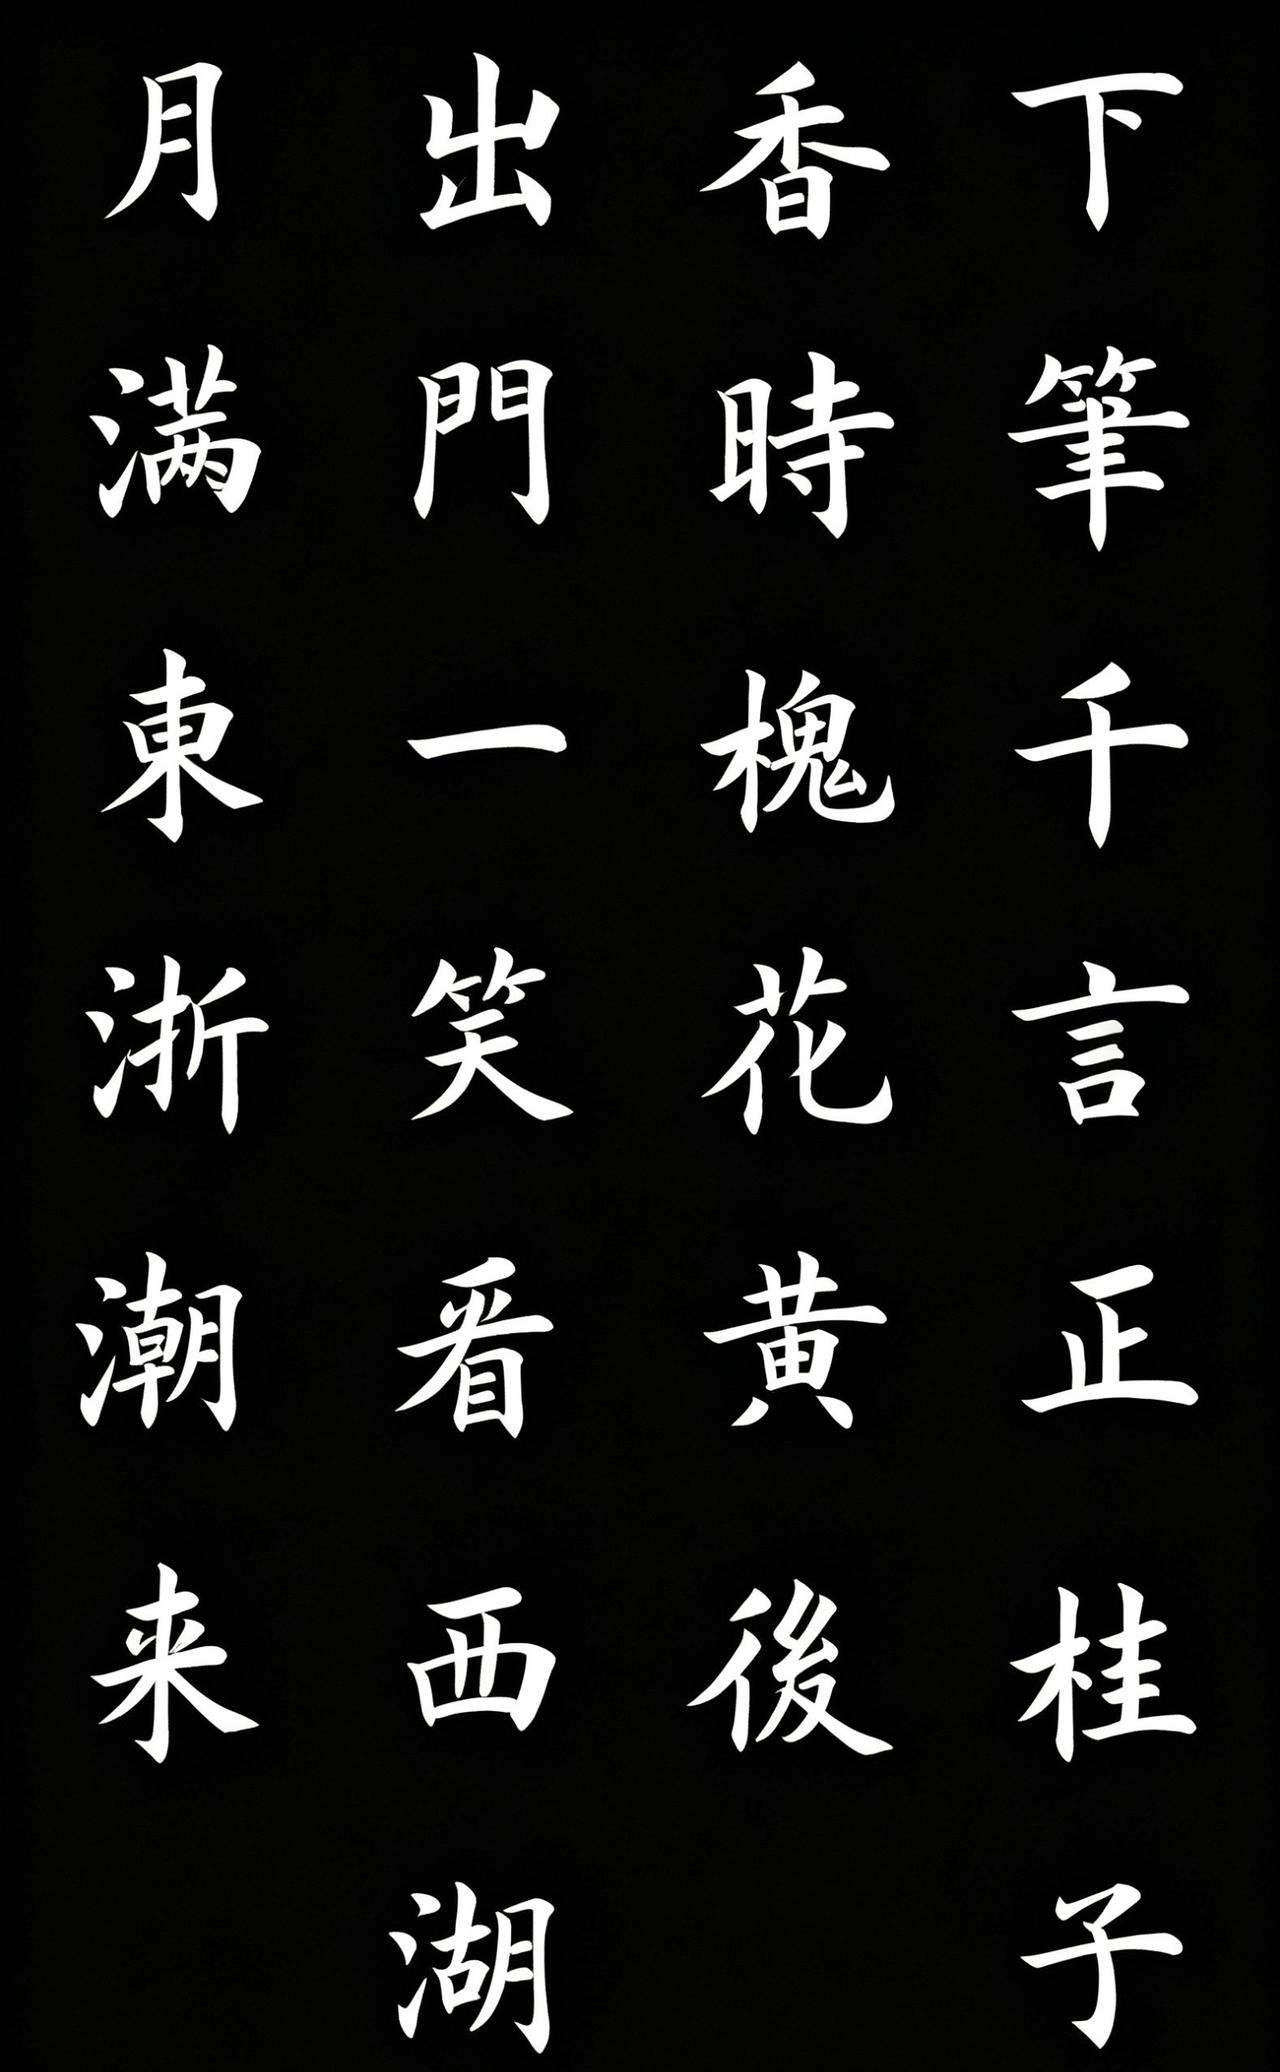 下筆千言正桂子
香時槐花黄後
出門一笑看西湖
月满東浙潮来